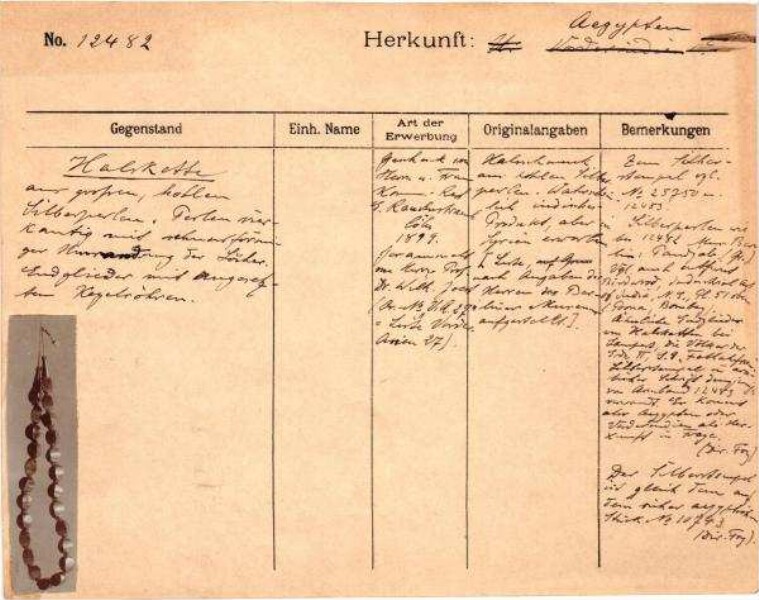 No. 12482
Herkunft: Aegypten
Vorderindien
Gegenstand
Einh. Name
Art der Erwerbung
Originalangaben
Bemerkungen
Halskette
aus großen, hohlen
Silberperlen. Perlen vier-
kantig mit schnurförmi-
ger Umrandung der Löcher.
Endglieder mit angesetz-
ten Kegelröhren.
Geschenk von
Herrn u. Frau
Komm.-Rat
E. Rautenstrauch
Cöln
1899.
Gesammelt
von Herrn Prof.
Dr. Wilh. Joest
= Liste Vorder-
asien 27).
Halsschmuck
aus hohlen Silber-
perlen. Wahrschein-
lich indisches
Produkt, aber in
Syrien erworben
[Liste, auf Grund
nach Angaben der
Herren des Ber-
liner Museums
aufgestellt].
Zum Silber-
stempel vgl.
No 25750 u.
12483.
Silberperlen wie
bei 12482 Mus. Ber-
lin: Pandjab
Vgl. auch
Ähnliche Endglieder
an Halsketten bei
die Völker der
Silberstempel in ara-
bischer Schrift
von Armband 12483
verwandt. Es kommt
also Aegypten oder
Vorderindien als Her-
kunft in Frage.
(Dir. Foy)
Der Silberstempel
ist gleich dem auf
dem sicher aegyptischen
Stück No 10743
(Dir. Foy).